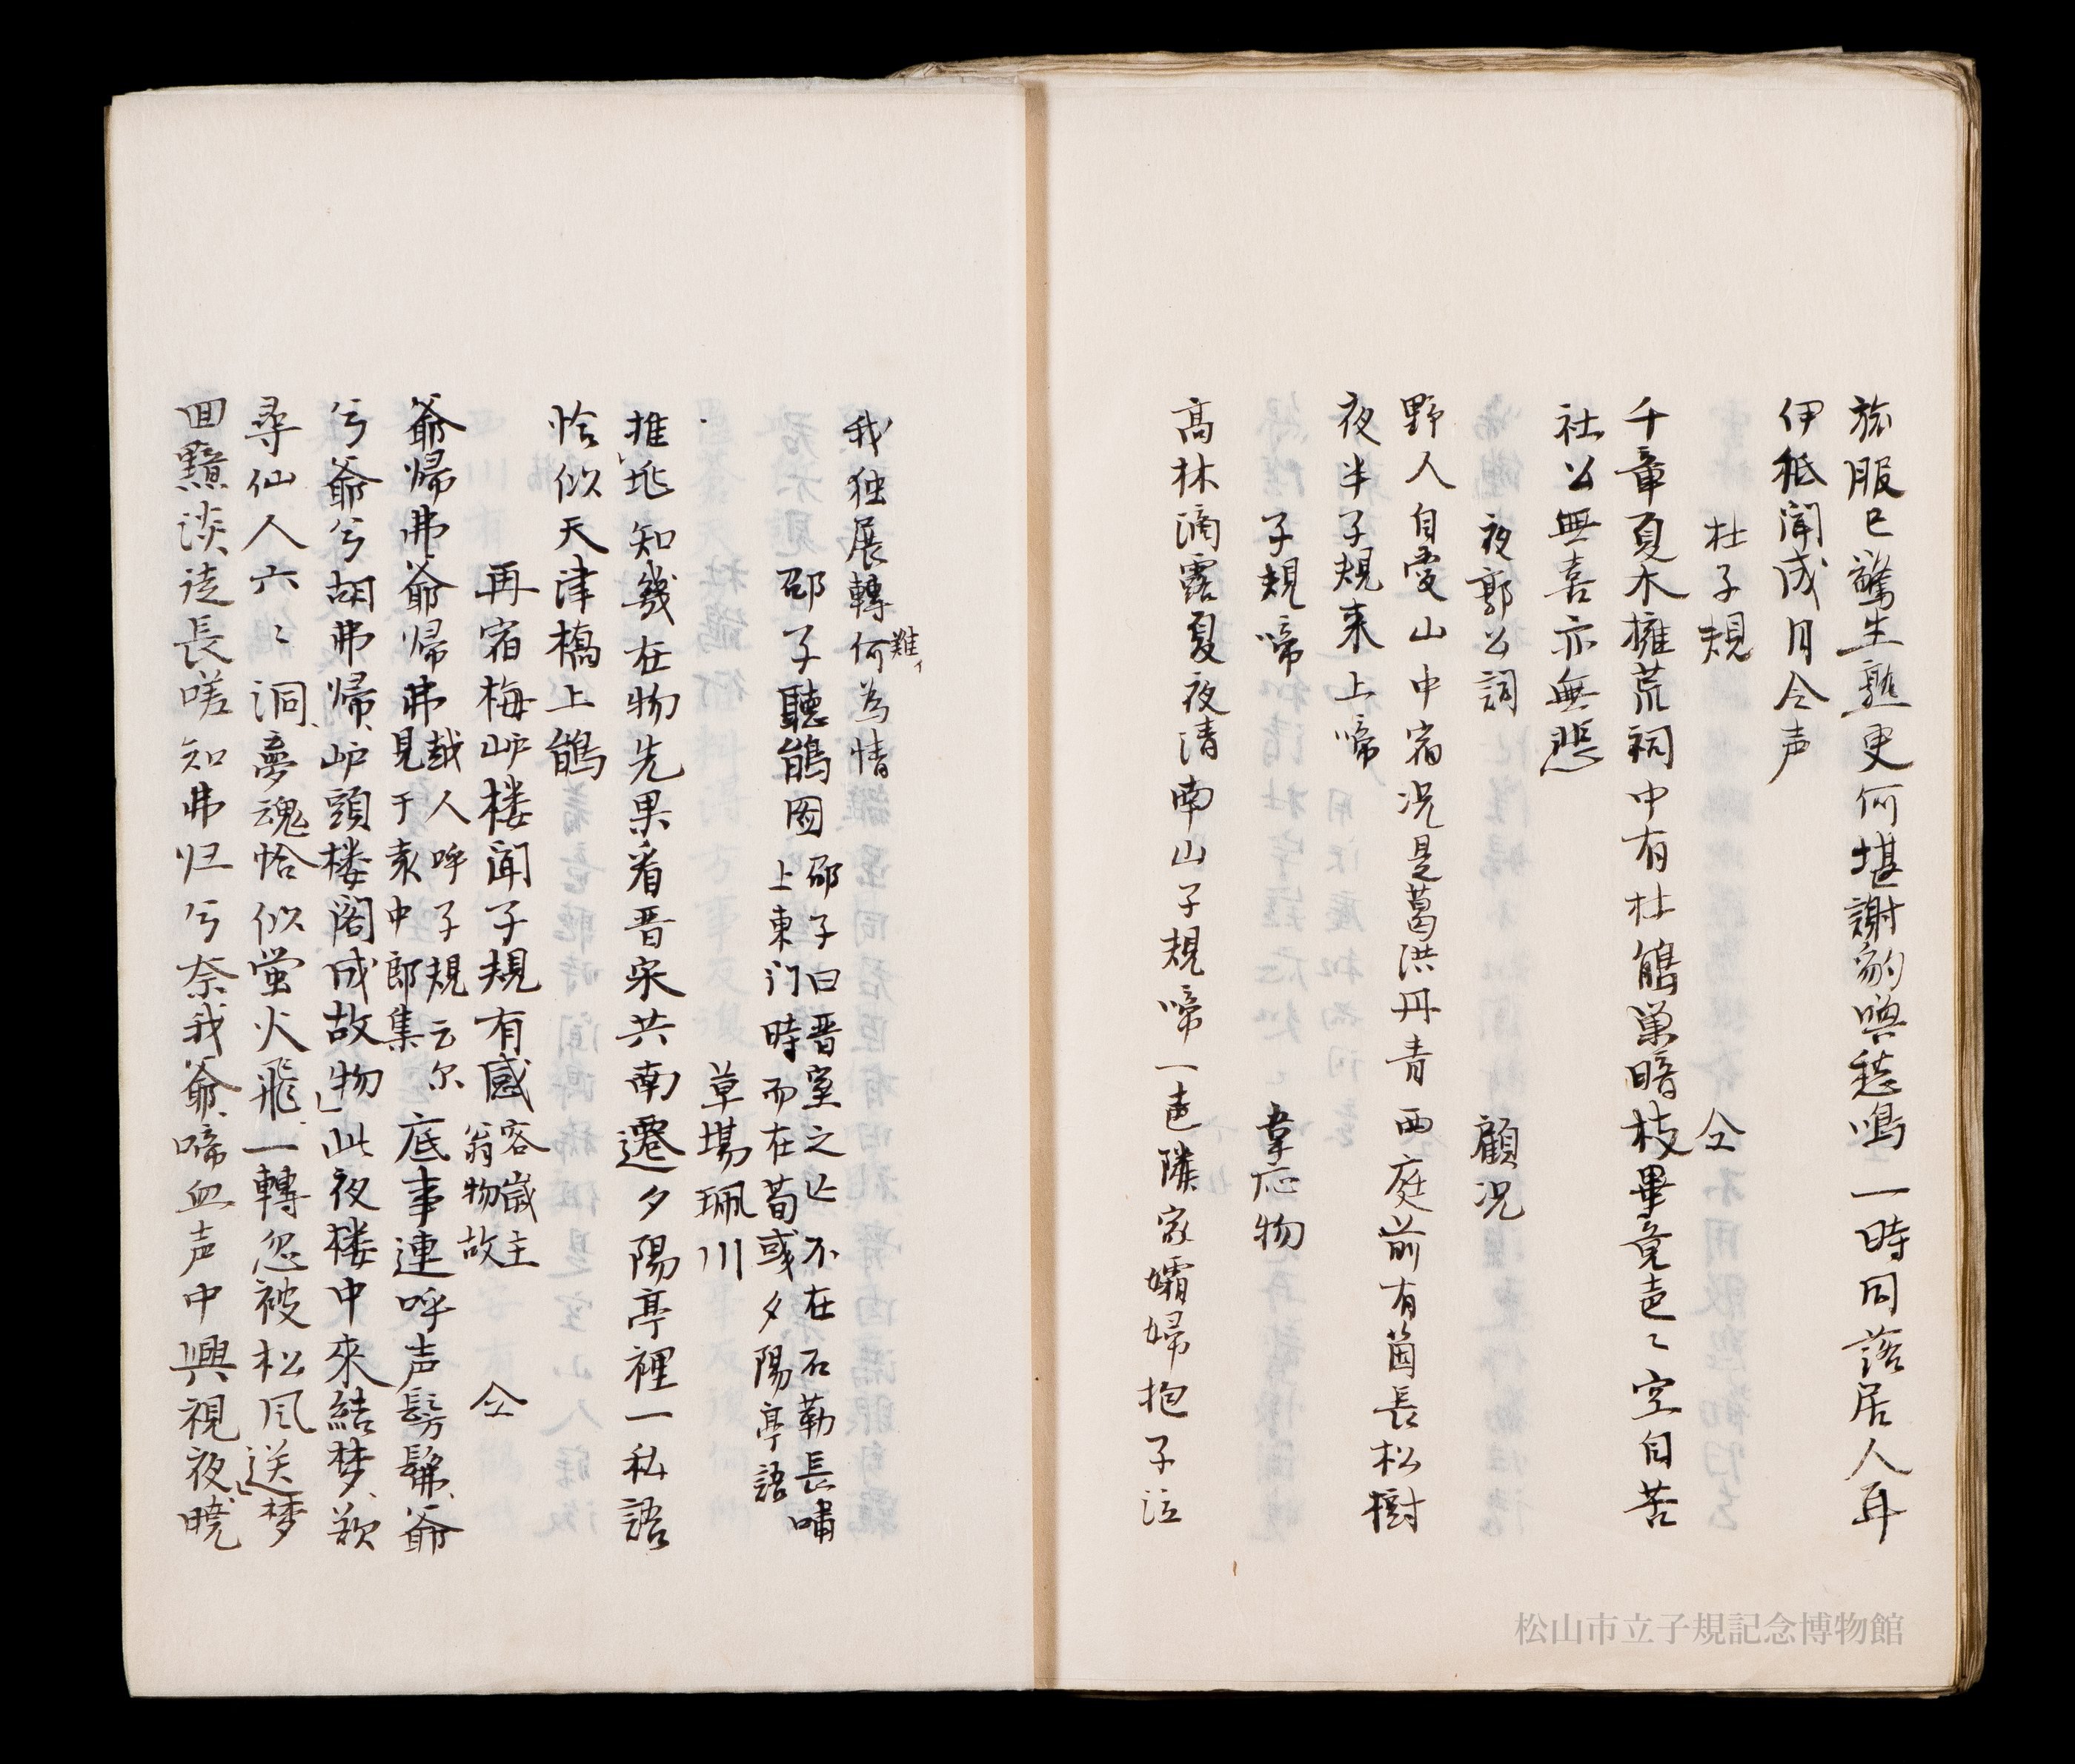 旅服已驚生熟更何堪謝豹喚愁鳴一時同落居人耳
伊秪聞成月令声
杜子規　仝
千章夏木擁荒祠中有杜鵑巣暗枝畢竟声々空自苦
社公無喜亦無悲
夜郭公詞　顧况
野人自愛山中宿况是葛洪丹青西庭前有箇長松樹
夜半子規来上啼
子規啼　韋応物
高林滴露夏夜清南山子規啼一声隣家孀婦抱子泣
我独展轉何難為情
邵子聽鵑図　邵子曰晋室之亡不在石勒長嘯
上東门時而在荀彧夕陽亭語
草場珮川
推步知幾在物先果看晋宋共南遷夕陽亭裡一私語
恰似天津橋上鵑
再宿梅岾楼聞子規有感　客歳主
翁物故　仝
爺帰弗爺帰弗　越人呼子規云尓
見于袁中郎集　底事連呼声髣髴爺
兮爺兮胡弗帰岾頭楼閣成故物此夜楼中來結梦欲
尋仙人六々洞夢魂恰似蛍火飛一轉忽被松风送梦
回黯淡徒長嗟知弗归兮奈我爺啼血声中興視夜暁
松山市立子規記念博物館